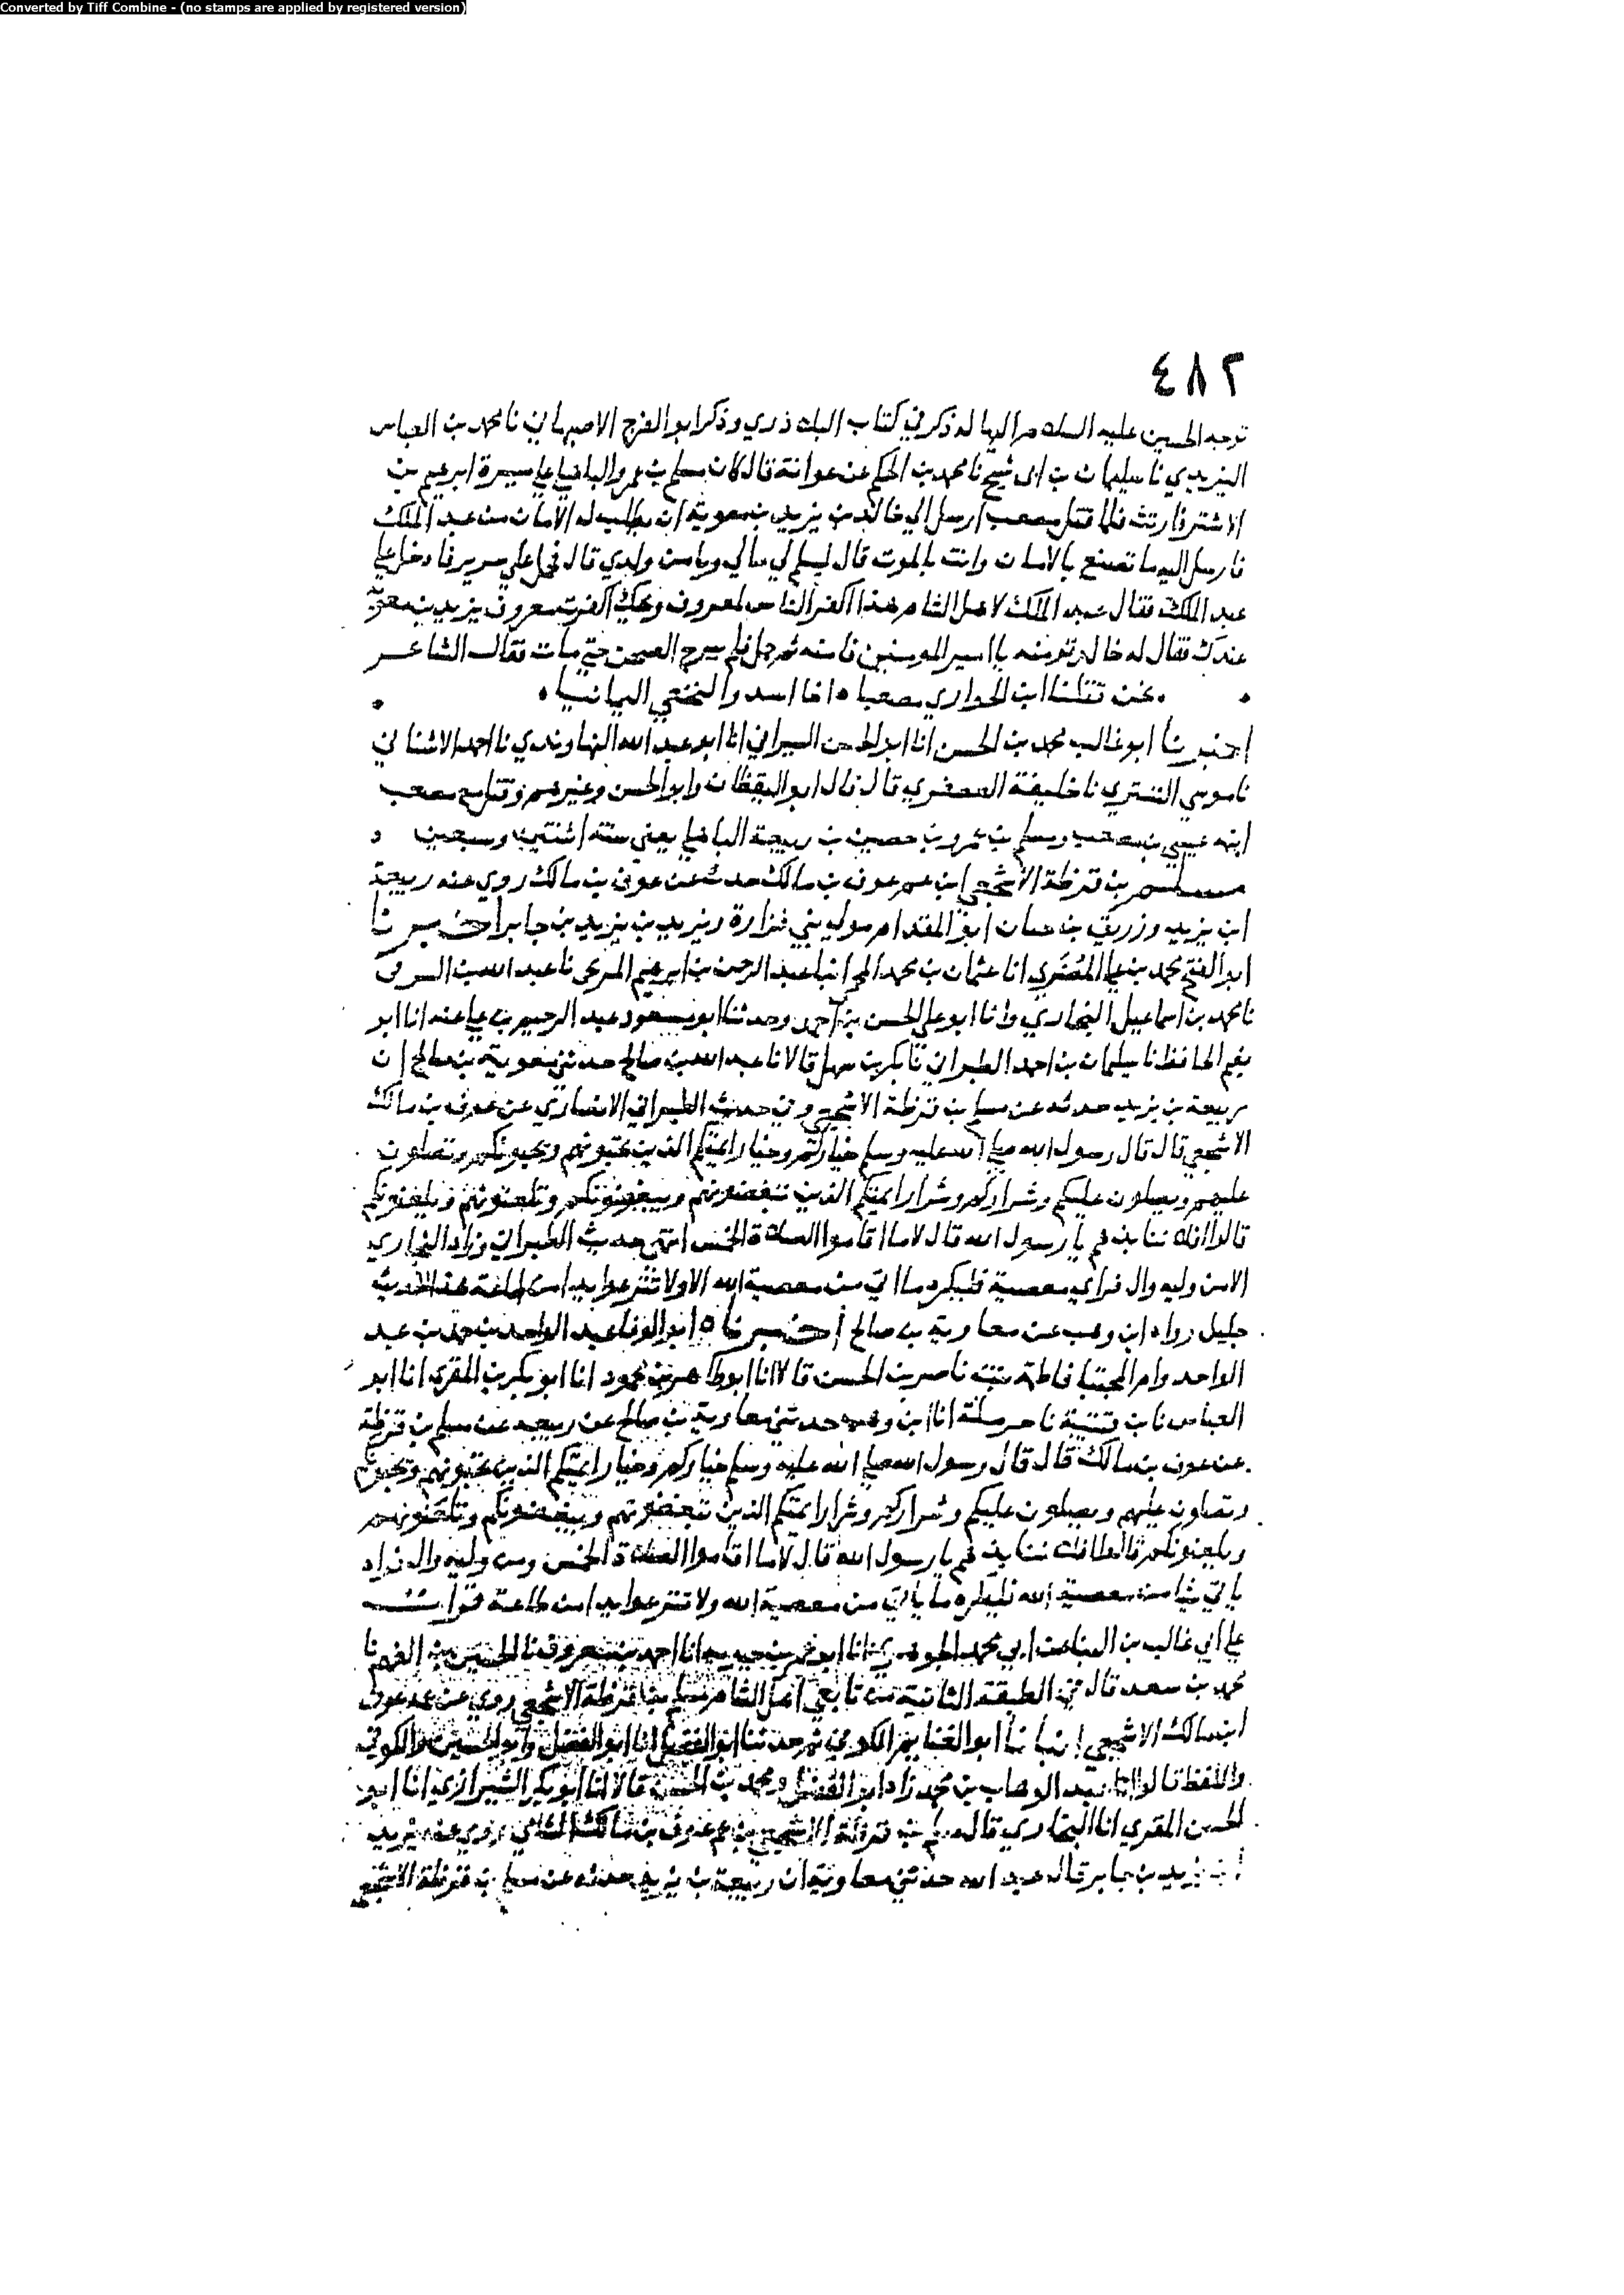 Converted by Tiff Combine - (no stamps are applied by registered version)
٤٨٢
توجه الحسين عليه السلام اليها له ذكر في كتاب البلاذري وذكر ابو الفرج الاصبهاني نا محمد بن العباس
اليزيدي نا سليمان بن ابي شيخ نا محمد بن الحكم عن عوانة قال كان مسلم بن عمرو الباهلي على ميسرة ابرهيم بن
الاشتر فارتث فلما قتل مصعب ارسل الى خالد بن يزيد بن معوية ان يطلب له الامان من عبد الملك
فارسل اليه ما تصنع بالامان وانت بالموت قال ليسلم لي مالي ويامن ولدي قال فحمل على سرير فادخل على
عبد الملك فقال عبد الملك لاهل الشام هذا اكفر الناس لمعروف ويحك اكفرت معروف يزيد بن معوية
عندك فقال له خالد تؤمنه يا امير المومنين فامنه ثم حمل فلم يبرح الصحن حتى مات فقال الشاعر
نحن قتلنا ابن الحواري مصعبا اخا اسد والنخعي اليمانيا
اخبرنا ابو غالب محمد بن الحسن انا ابو الحسن السيرافي انا ابو عبد الله النهاوندي نا احمد الاشناني
نا موسى التستري نا خليفة العصفري قال قال ابو اليقظان وابو الحسن وغيرهم وقتل مع مصعب
ابنه عيسى بن مصعب ومسلم بن عمرو بن حصين بن ربيعة الباهلي يعني سنة اثنتين وسبعين
مسلم بن قرظة الاشجعي ابن عم عوف بن مالك حدث عن عوف بن مالك روى عنه ربيعة
ابن يزيد وزريق بن حيان ابو المقدام مولى بني فزارة ويزيد بن يزيد بن جابر اخبرنا
ابو الفتح محمد بن علي المضري انا عثمان بن محمد انبا عبد الرحمن بن ابرهيم نا عبد الله بن
نا محمد بن اسماعيل البخاري وانا ابو علي الحسن بن احمد وحدثنا ابو مسعود عبد الرحيم بن علي عنه انا ابو
نعيم الحافظ نا سليمان بن احمد الطبراني نا بكر بن سهل قالا نا عبد الله بن صالح حدثني معوية بن صالح ان
ربيعة بن يزيد حدثه عن مسلم بن قرظة الاشجعي وفي حديث الطبراني الانصاري عن عوف بن مالك
الاشجعي قال قال رسول الله صلى الله عليه وسلم خياركم وخيار ائمتكم الذين تحبونهم ويحبونكم وتصلون
عليهم ويصلون عليكم وشراركم وشرار ائمتكم الذين تبغضونهم ويبغضونكم وتلعنونهم ويلعنونكم
قالوا افلا ننابذهم يا رسول الله قال لا ما اقاموا الصلاة الخمس انتهى حديث الطبراني وزاد البخاري
الا من وليه وال فراى معصية فليكره ما اتى من معصية الله الا ولا تنزعوا يدا من طاعة هذا حديث
جليل رواه ابن وهب عن معاوية بن صالح اخبرناه ابو الوفا عبد الواحد بن حمد بن عبد
الواحد وام المجتبا فاطمة بنت ناصر بن الحسن قالا انا ابو طاهر بن محمود انا ابو بكر بن المقرى انا ابو
العباس نا بن قتيبة نا حرملة انا ابن وهب حدثني معاوية بن صالح عن ربيعة عن مسلم بن قرظة
عن عوف بن مالك قال قال رسول الله صلى الله عليه وسلم خياركم وخيار ائمتكم الذين تحبونهم ويحبونكم
وتصلون عليهم ويصلون عليكم وشراركم وشرار ائمتكم الذين تبغضونهم ويبغضونكم وتلعنونهم
ويلعنونكم قالوا افلا ننابذهم يا رسول الله قال لا ما اقاموا الصلاة الخمس ومن وليه وال فراه
ياتي شيا من معصية الله فليكره ما ياتي من معصية الله ولا تنزعوا يدا من طاعة قرات
على ابي غالب بن البنا عن ابي محمد الجوهري انا ابو عمر بن حيويه انا احمد بن معروف نا الحسين بن الفهم نا
محمد بن سعد قال في الطبقة الثانية من تابعي اهل الشام مسلم بن قرظة الاشجعي روى عن عوف
ابن مالك الاشجعي انبانا ابو الغنايم الكوفي ثم حدثنا ابو الفضل انا ابو الفضل وابو الحسين والكوفي
واللفظ قالوا انا عبد الوهاب بن محمد زاد ابو الفضل ومحمد بن الحسن قالا انا ابو بكر الشيرازي انا ابو
الحسن المقري انا البخاري قال مسلم بن قرظة الاشجعي بن عم عوف بن مالك الشامي روى عنه يزيد
ابن يزيد بن جابر قال عبد الله حدثني معاوية ان ربيعة بن يزيد حدثه عن مسلم بن قرظة الاشجعي